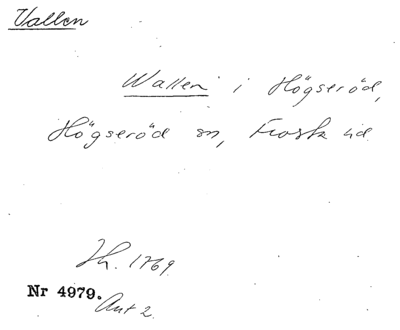 Vallen
Wallen i Högseröd,
Högseröd sn, Frosta hd
Jh. 1769.
Nr 4979.
Ant 2.